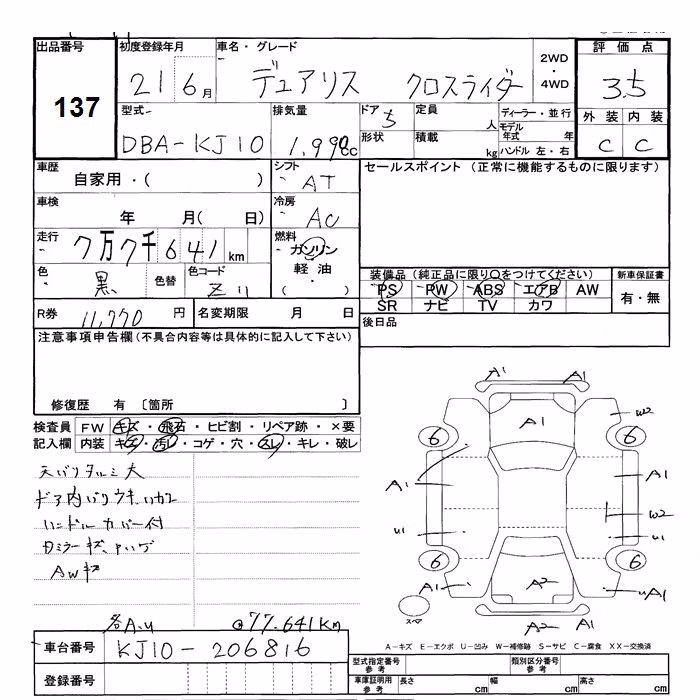 出品番号 137
初度登録年月 21 6月
車名・グレード デュアリス クロスライダー
2WD・4WD
評価点 3.5
型式 DBA-KJ10
排気量 1,990cc
ドア 5
形状
定員 人
積載 kg
ディーラー・並行
モデル年式 年
ハンドル 左・右
外装 C
内装 C
車歴 自家用・( )
シフト AT
セールスポイント (正常に機能するものに限ります)
車検 年 月( 日)
冷房 AC
走行 7万7千641km
燃料 ガソリン 軽油・( )
色 黒 色替
色コード Z11
装備品 (純正品に限り○をつけてください)
新車保証書
PS PW ABS エアB AW
SR ナビ TV カワ
有・無
R券 11,770円
名変期限 月 日
後日品
注意事項申告欄(不具合内容等は具体的に記入して下さい)
修復歴 有 〔箇所 〕
検査員 FW キズ・飛石・ヒビ割・リペア跡・×要
記入欄 内装 キズ・汚レ・コゲ・穴・スレ・キレ・破レ
天バリタルミ大
ドア内バリウキ
ハンドルカバー付
ミラーキズ
AWキズ
各A.U
77.641Km
A1 A1
A1
W2
6 6
A1 A1
W2
U1 U1
6 6
A1 A2 UA1
スペア
A1
A2
A-キズ E-エクボ U-凹み W-補修跡 S-サビ C-腐食 XX-交換済
車台番号 KJ10-206816
登録番号
型式指定番号 参考
類別区分番号 参考
車庫証明用 参考
長さ cm
幅 cm
高さ cm